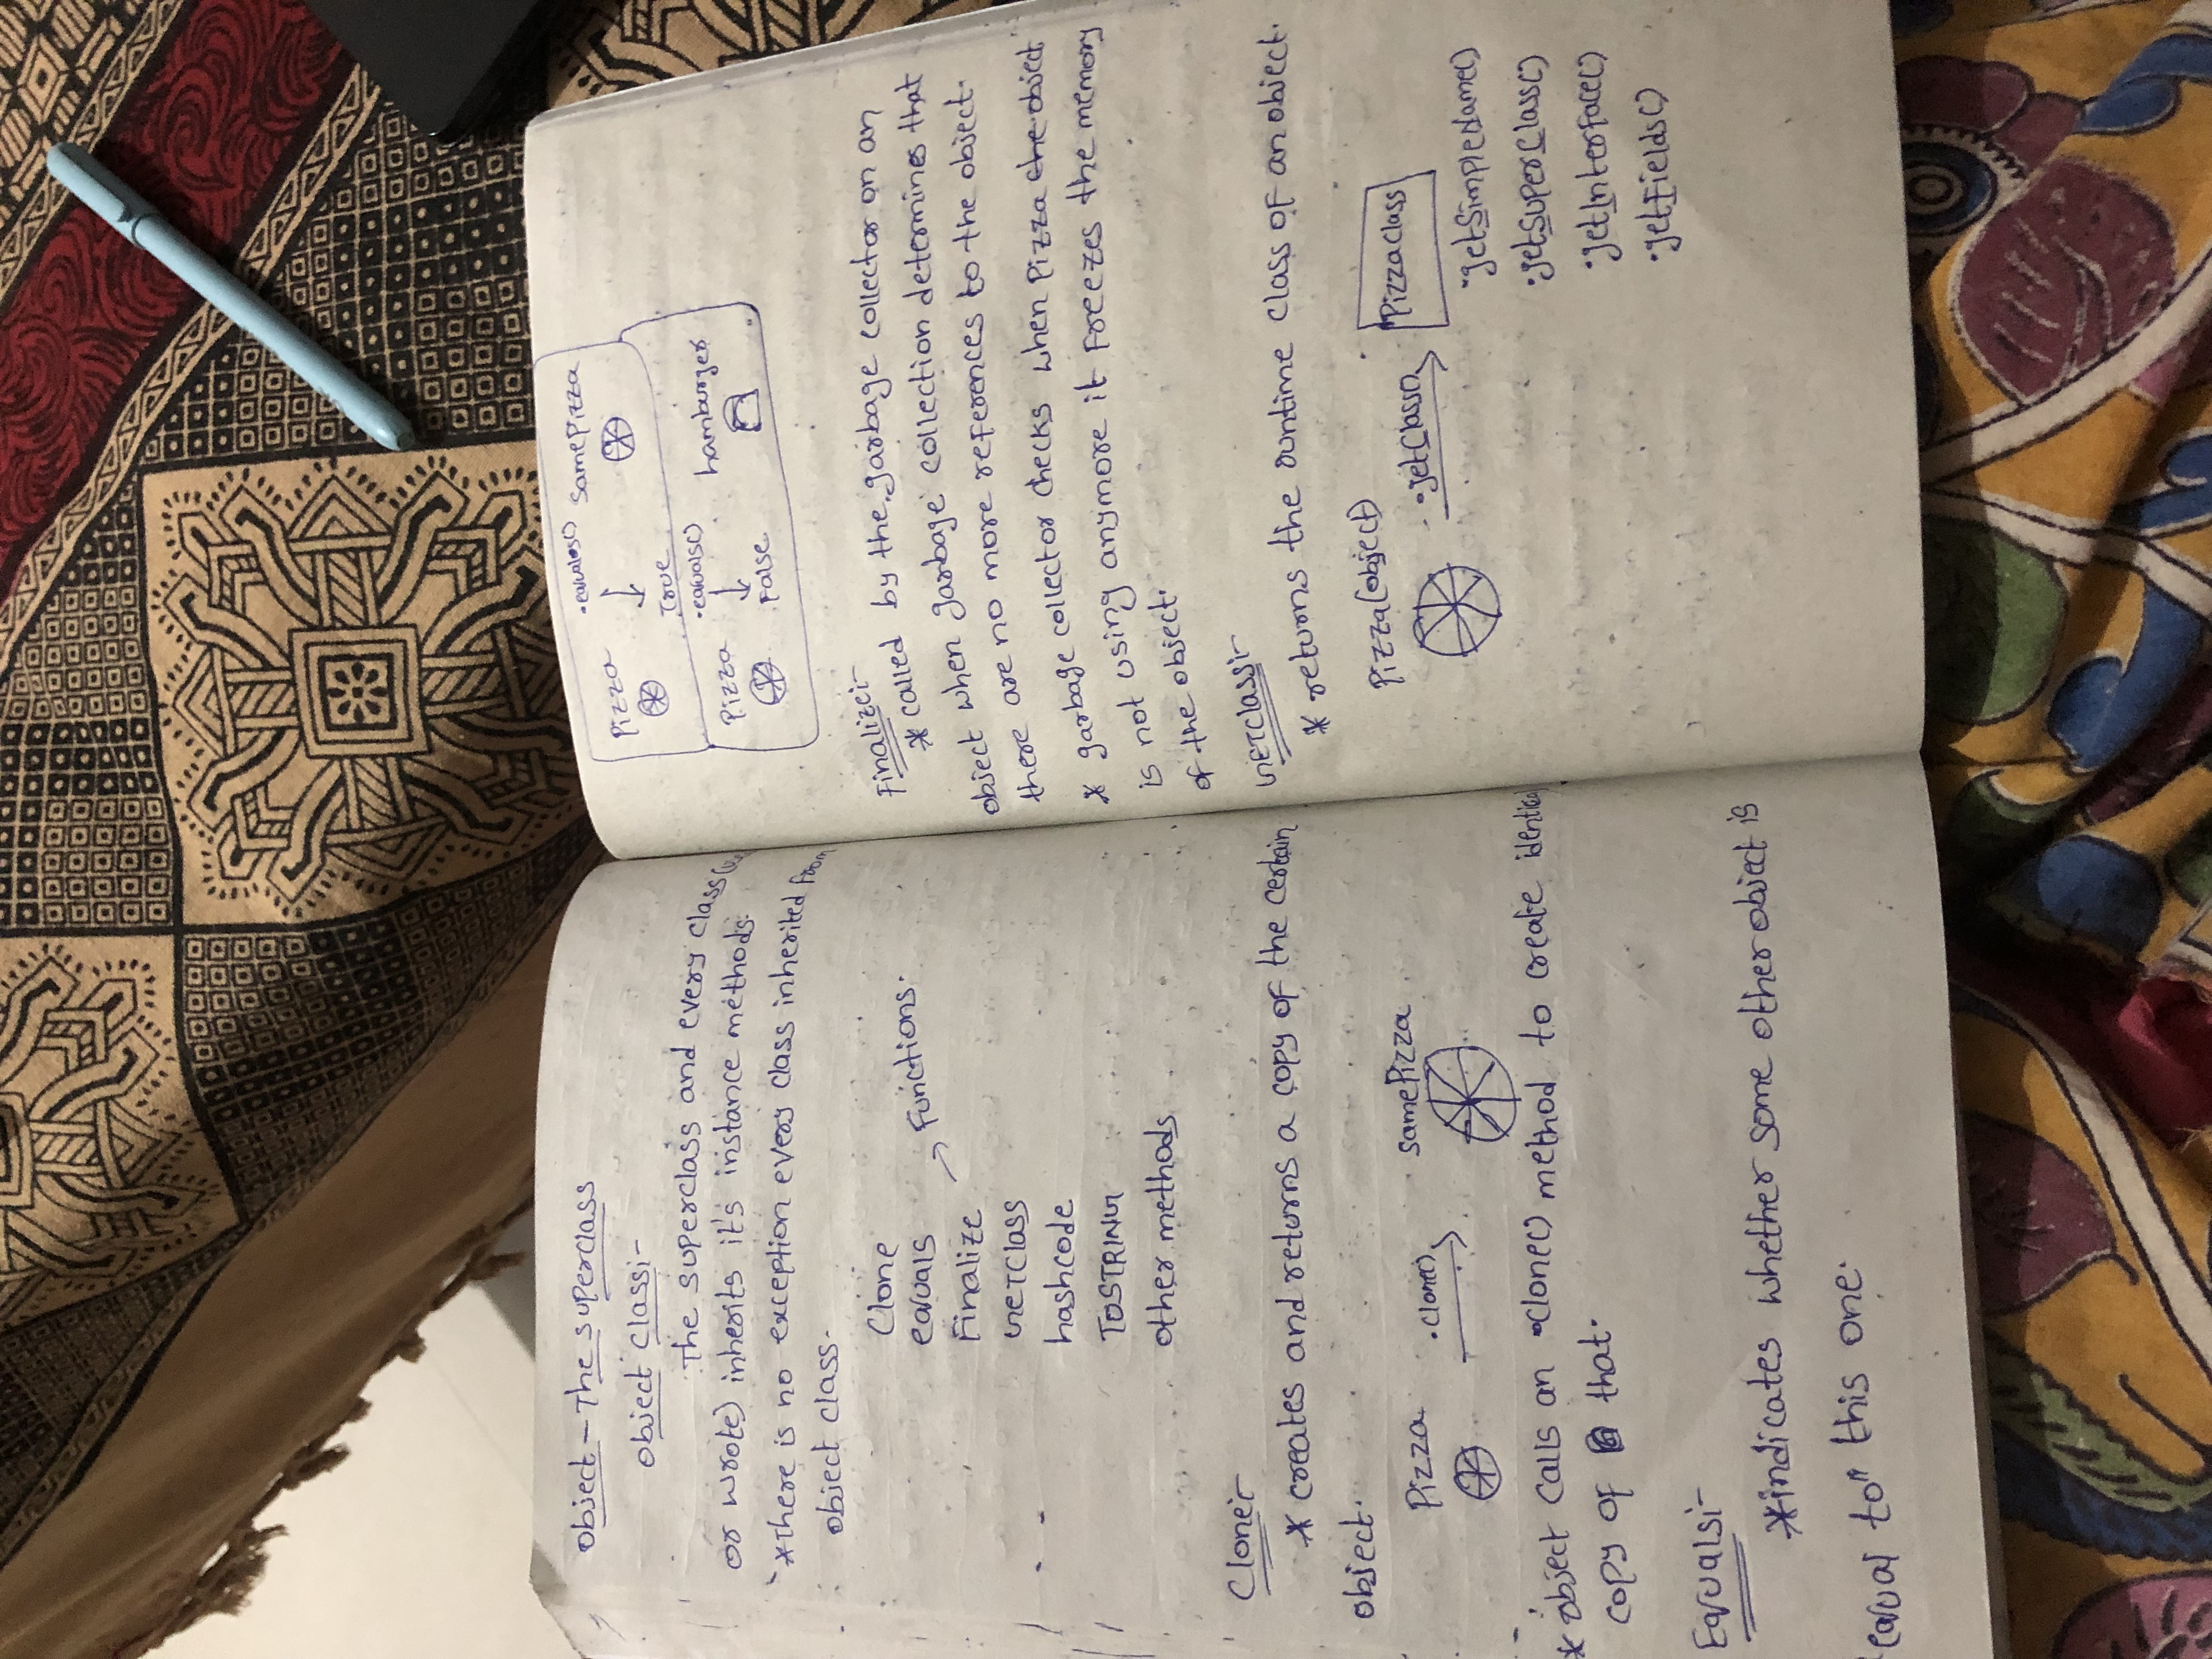 Object - The superclass
Object Class:-
The superclass and every class
or wrote) inherits it's instance methods.
*There is no exception every class inherited from
object class.
Clone
equals
Finalize → Functions.
GETClass
hashcode
TOSTRING
other methods
Clone:-
* creates and returns a copy of the certain
object.
Pizza .clone() samePizza
* object calls an .clone() method to create identical
copy of that.
Equals:-
*indicates whether some other object is
"equal to" this one.
Pizza .equals() samePizza
True
Pizza .equals() hamburger
False
Finalize:-
* called by the garbage collector on an
object when garbage collection determines that
there are no more references to the object.
* garbage collector checks when Pizza the object
is not using anymore it freezes the memory
of the object.
GETClass:-
* returns the runtime class of an object.
Pizza(object) .getClass() Pizza Class
.getSimpleName()
.getSuperClass()
.getInterface()
.getFields()